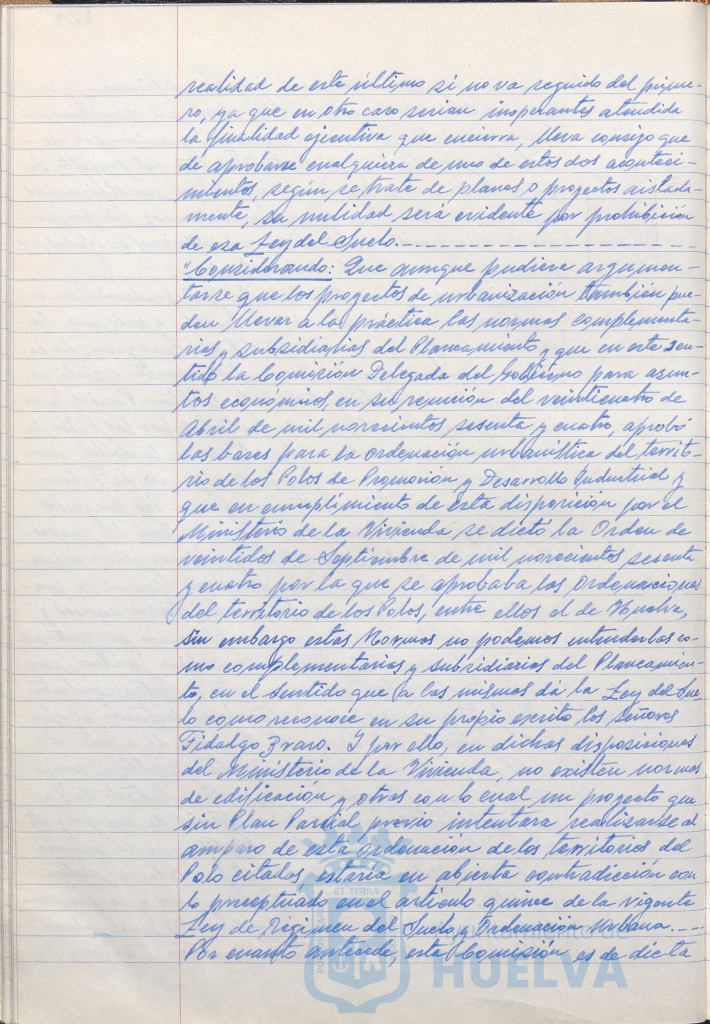 realidad de este último si no va seguido del prime-
ro, ya que en otro caso serian inoperantes atendida
la finalidad ejecutiva que encierra, lleva consigo que
de aprobarse cualquiera de uno de estos dos aconteci-
mientos, según se trate de planes o proyectos aislada-
mente, su nulidad será evidente por prohibición
de esa Ley del Suelo.
"Considerando: Que aunque pudiera argumen-
tarse que los proyectos de urbanización también pue-
den llevar a la práctica las normas complementa-
rias y subsidiarias del Planeamiento y que en este sen-
tido la Comisión Delegada del Gobierno para asun-
tos económicos, en su reunión del veinticuatro de
Abril de mil novecientos sesenta y cuatro, aprobó
las bases para la ordenación urbanística del territo-
rio de los Polos de Promoción y Desarrollo Industrial y
que en cumplimiento de esta disposición por el
Ministerio de la Vivienda se dictó la Orden de
veintidos de Septiembre de mil novecientos sesenta
y cuatro por la que se aprobaba las ordenaciones
del territorio de los Polos, entre ellos el de Huelva,
sin embargo estas Normas no podemos entenderlas co-
mo complementarias y subsidiarias del Planeamien-
to, en el sentido que a las mismas dá la Ley del Sue-
lo como reconoce en su propio escrito los señores
Fidalgo Bravo. Y por ello, en dichas disposiciones
del Ministerio de la Vivienda, no existen normas
de edificación y otras con lo cual un proyecto que
sin Plan Parcial previo intentara realizarse al
amparo de esta ordenación de los territorios del
Polo citados, estaria en abierta contradicción con
lo preceptuado en el artículo quince de la vigente
Ley de Régimen del Suelo y Ordenación Urbana.
Por cuanto antecede, esta Comisión es de dicta
ET TERRA
HUELVA